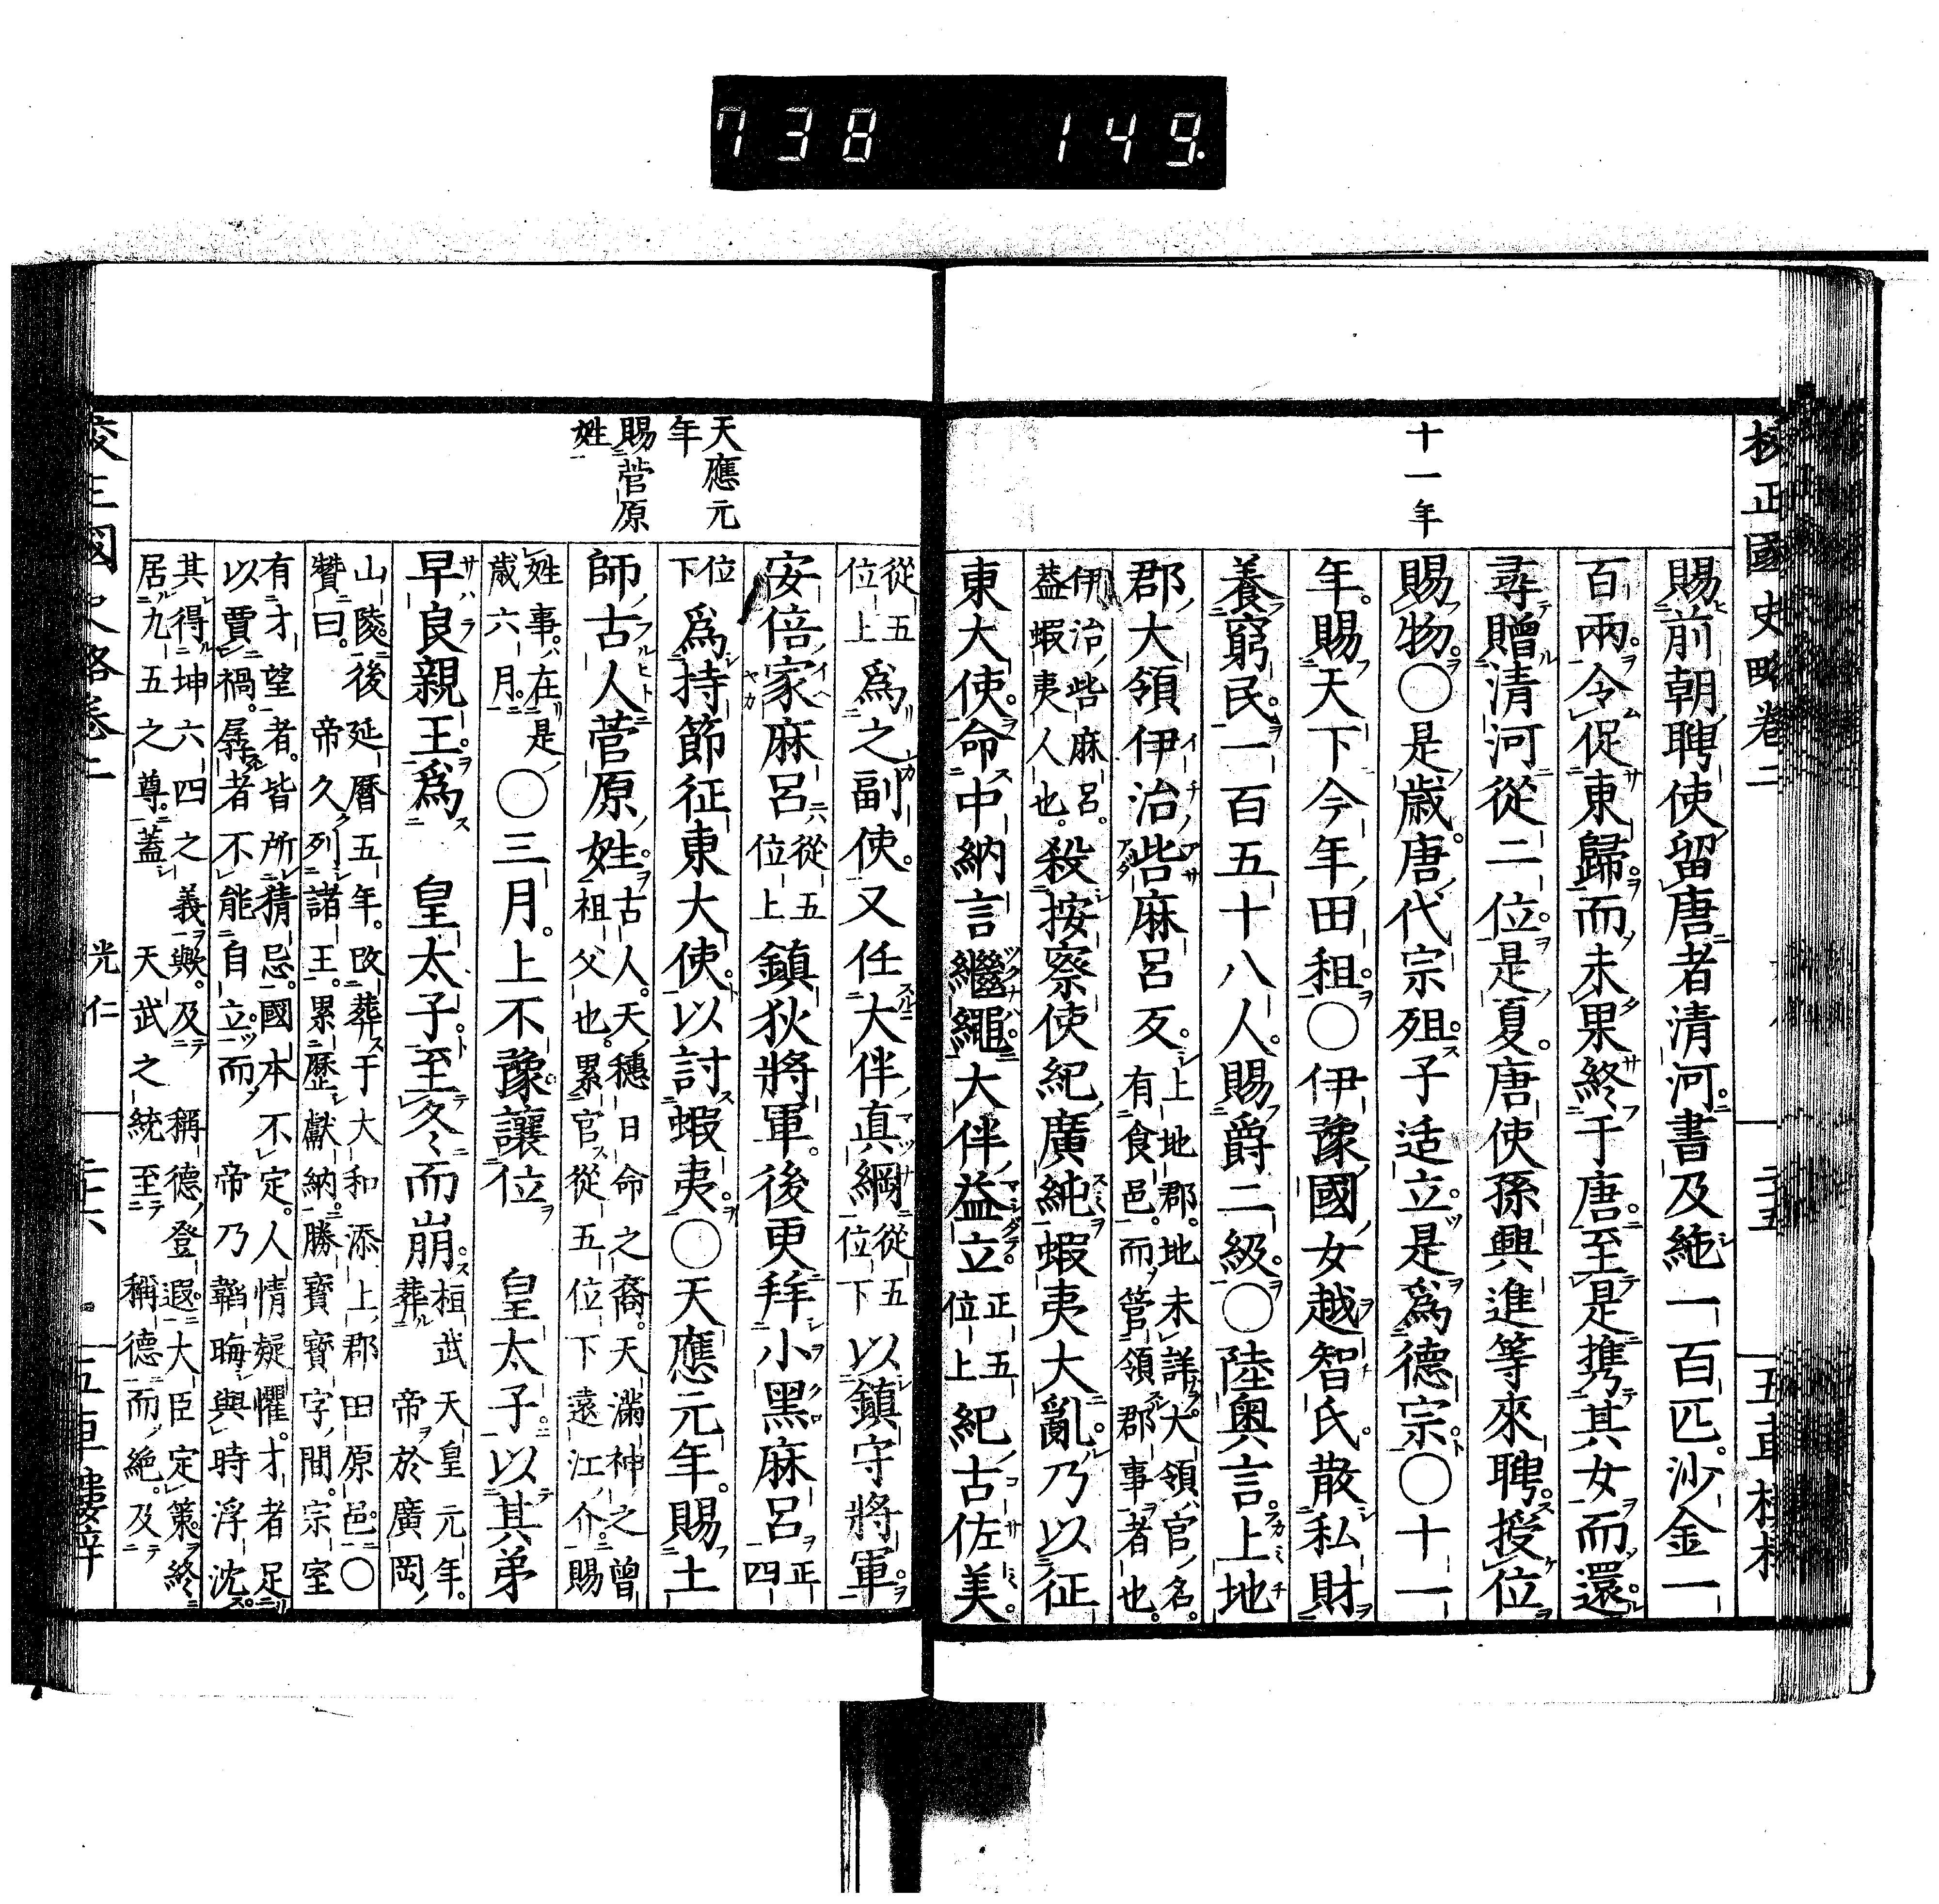 738 149
校正國史略卷二
二十五
五車樓梓
十一年
賜前朝聘使留唐者清河書及絁一百匹沙金一
百兩令促東歸而未果終于唐至是携其女而還
尋贈清河從二位是夏唐使孫興進等來聘授位
賜物〇是歲唐代宗殂子适立是爲德宗〇十一
年賜天下今年田租〇伊豫國女越智氏散私財
養窮民一百五十八人賜爵二級〇陸奥言上地
郡大領伊治呰麻呂反上地郡地未詳大領官名有食邑而管領郡事者也
伊治呰麻呂蓋蝦夷人也殺按察使紀廣純蝦夷大亂乃以征
東大使命中納言繼繩大伴益立正五位上紀古佐美
從五位上爲之副使又任大伴真綱從五位下以鎮守將軍
安倍家麻呂從五位上鎮狄將軍後更拜小黑麻呂正四
位下爲持節征東大使以討蝦夷〇天應元年賜土
師古人菅原姓古人天穗日命之裔天滿神之曾祖父也累官從五位下遠江介賜
姓事在是歲六月〇三月上不豫讓位 皇太子以其弟
早良親王爲 皇太子至冬而崩桓武天皇元年葬帝於廣岡
山陵後延曆五年改葬于大和添上郡田原邑〇
贊曰帝久列諸王累歷獻納勝寶寶字間宗室
有才望者皆所猜忌國本不定人情疑懼才者足
以賈禍孱者不能自立而帝乃韜晦與時浮沈
其得坤六四之義歟及稱德登遐大臣定策終
居九五之尊蓋天武之統至稱德而絶及
天應元年
賜菅原姓
校正國史略卷二
光仁
二十六
五車樓梓